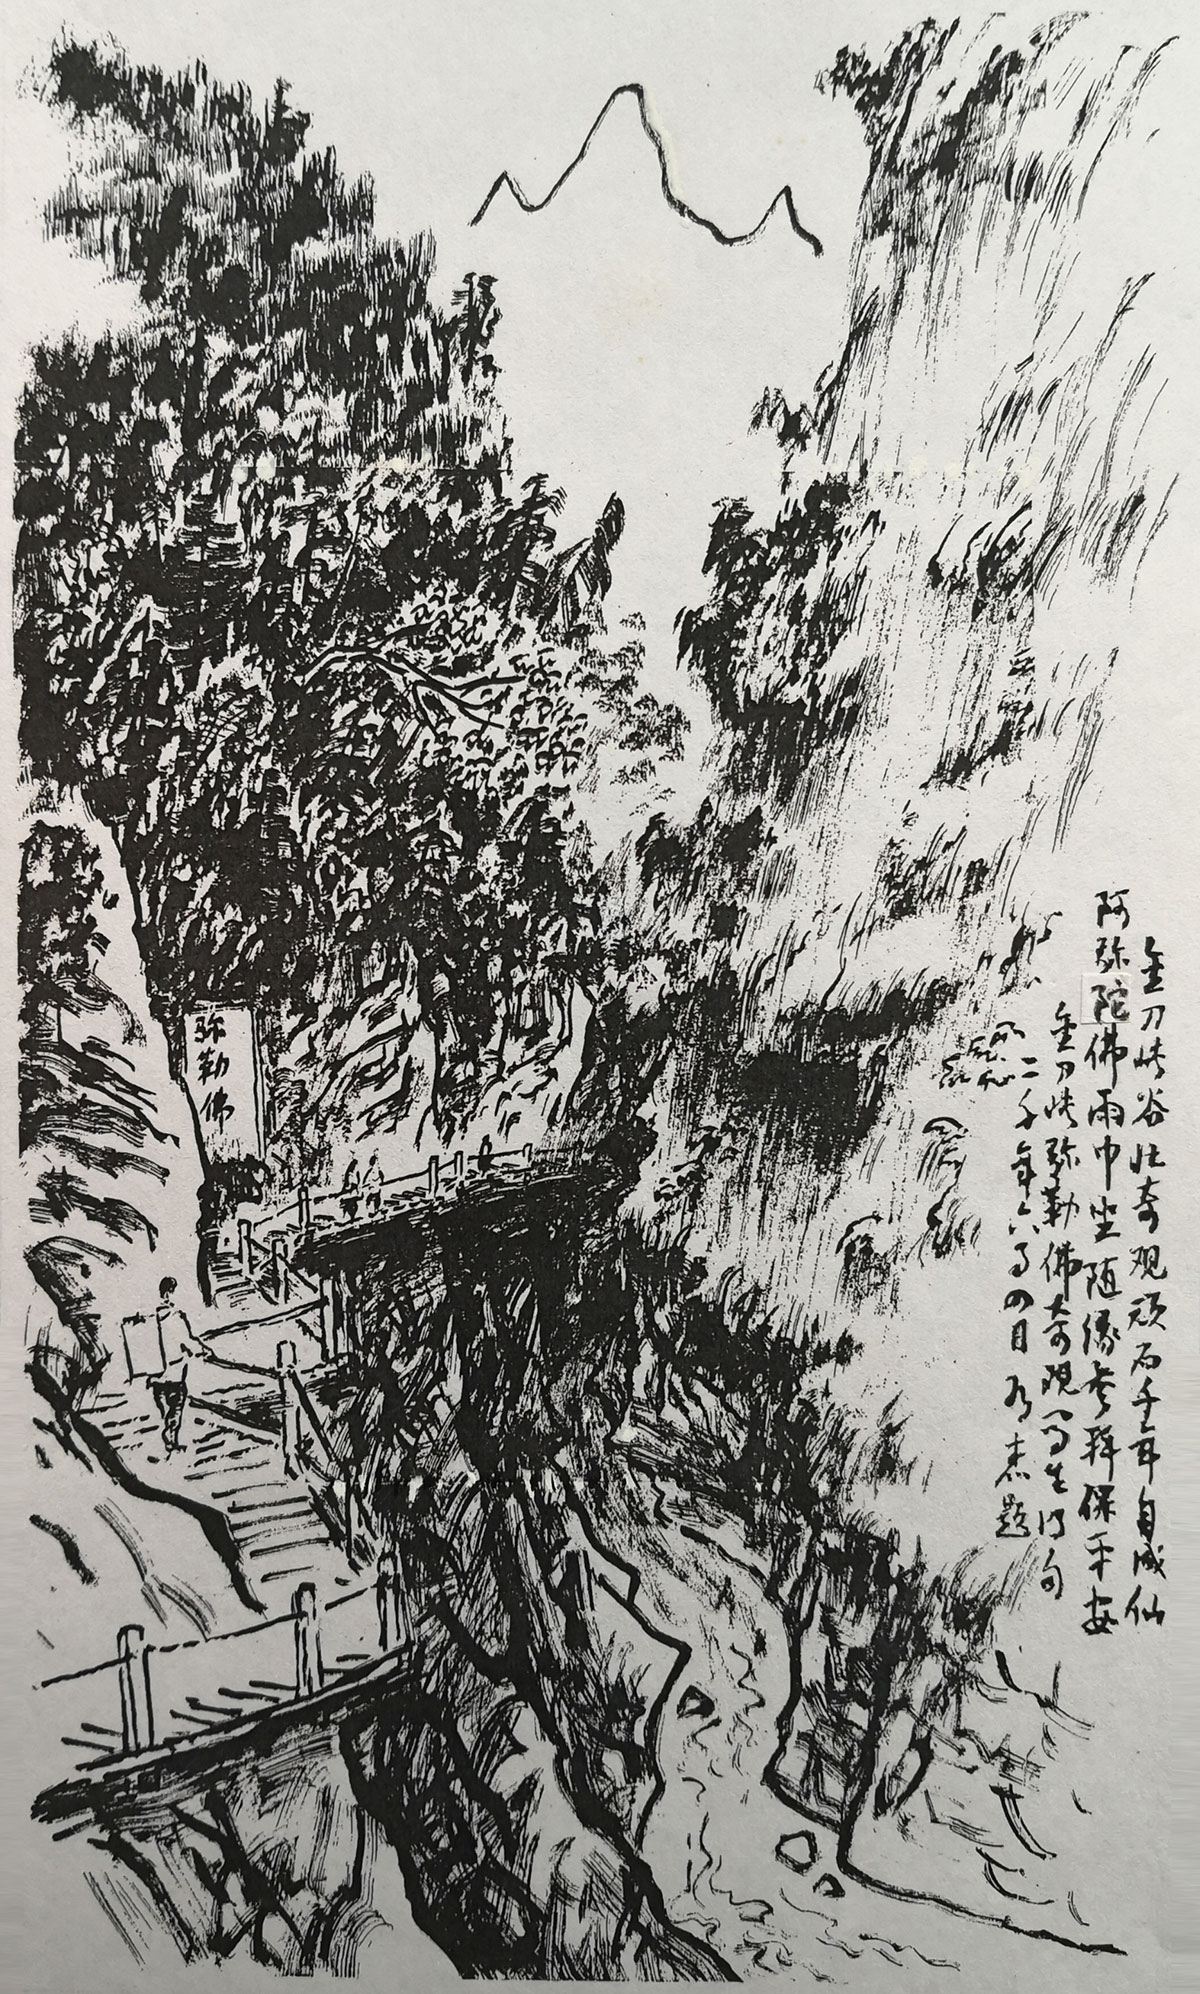 金刀峡谷壮奇观顽石千年自成仙
阿弥陀佛雨中坐随缘参拜保平安
金刀峡弥勒佛奇观写生得句
二千年六月四日 杰题
弥勒佛